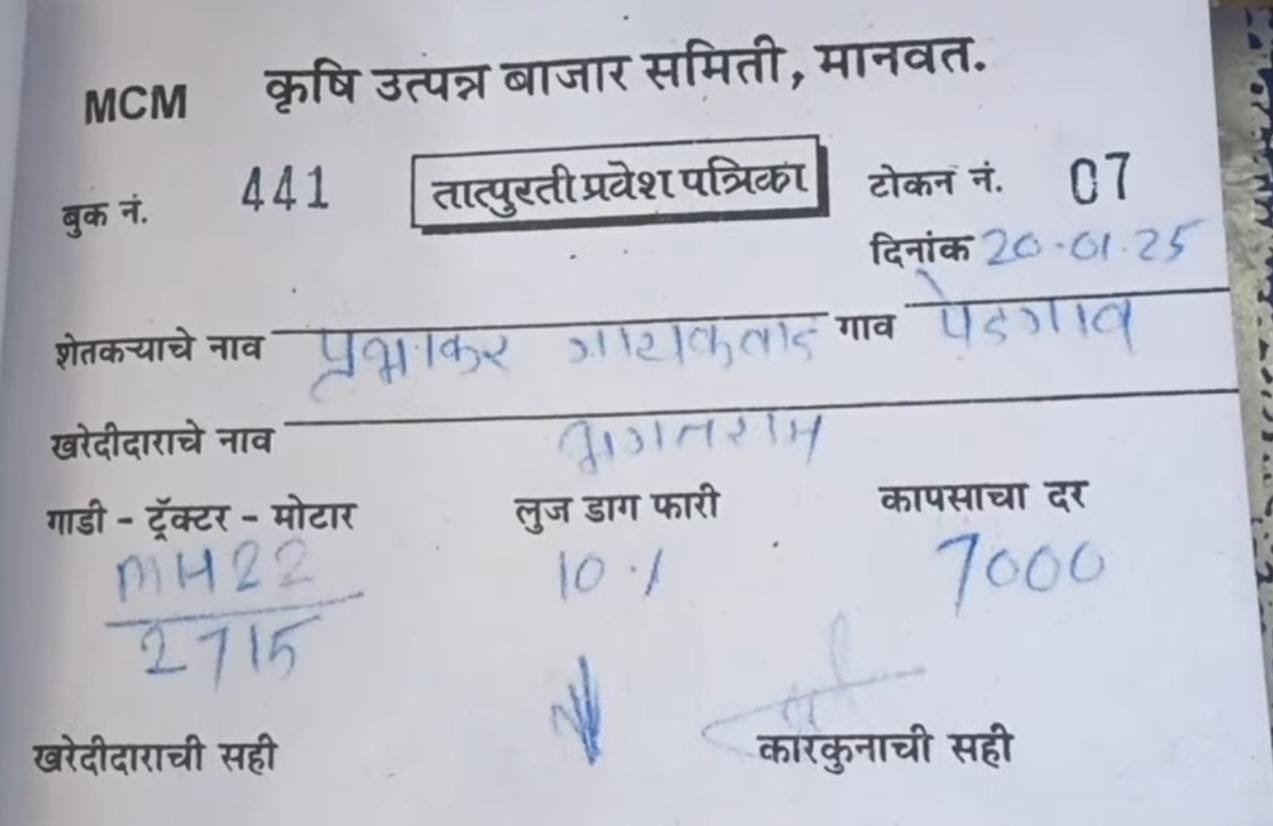 MCM कृषि उत्पन्न बाजार समिती, मानवत.
बुक नं. 441 तात्पुरती प्रवेश पत्रिका टोकन नं. 07
दिनांक 20.01.25
शेतकऱ्याचे नाव प्रभाकर गायकवाड गाव पेडगाव
खरेदीदाराचे नाव भगतराम
गाडी - ट्रॅक्टर - मोटार लुज डाग फारी कापसाचा दर
MH22 10 ./ 7000
2715
खरेदीदाराची सही कारकुनाची सही